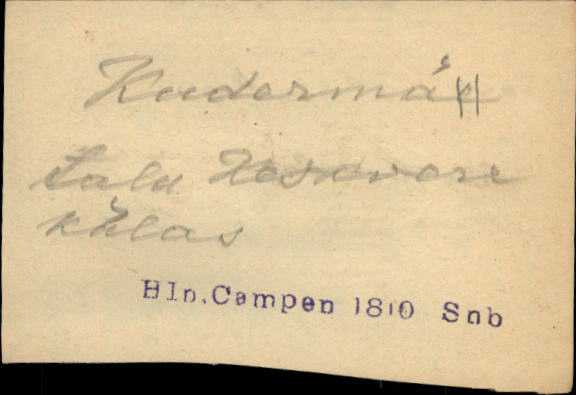 Kudermäe
talu Keskvere
külas
Hln. Campen 1810 Snb